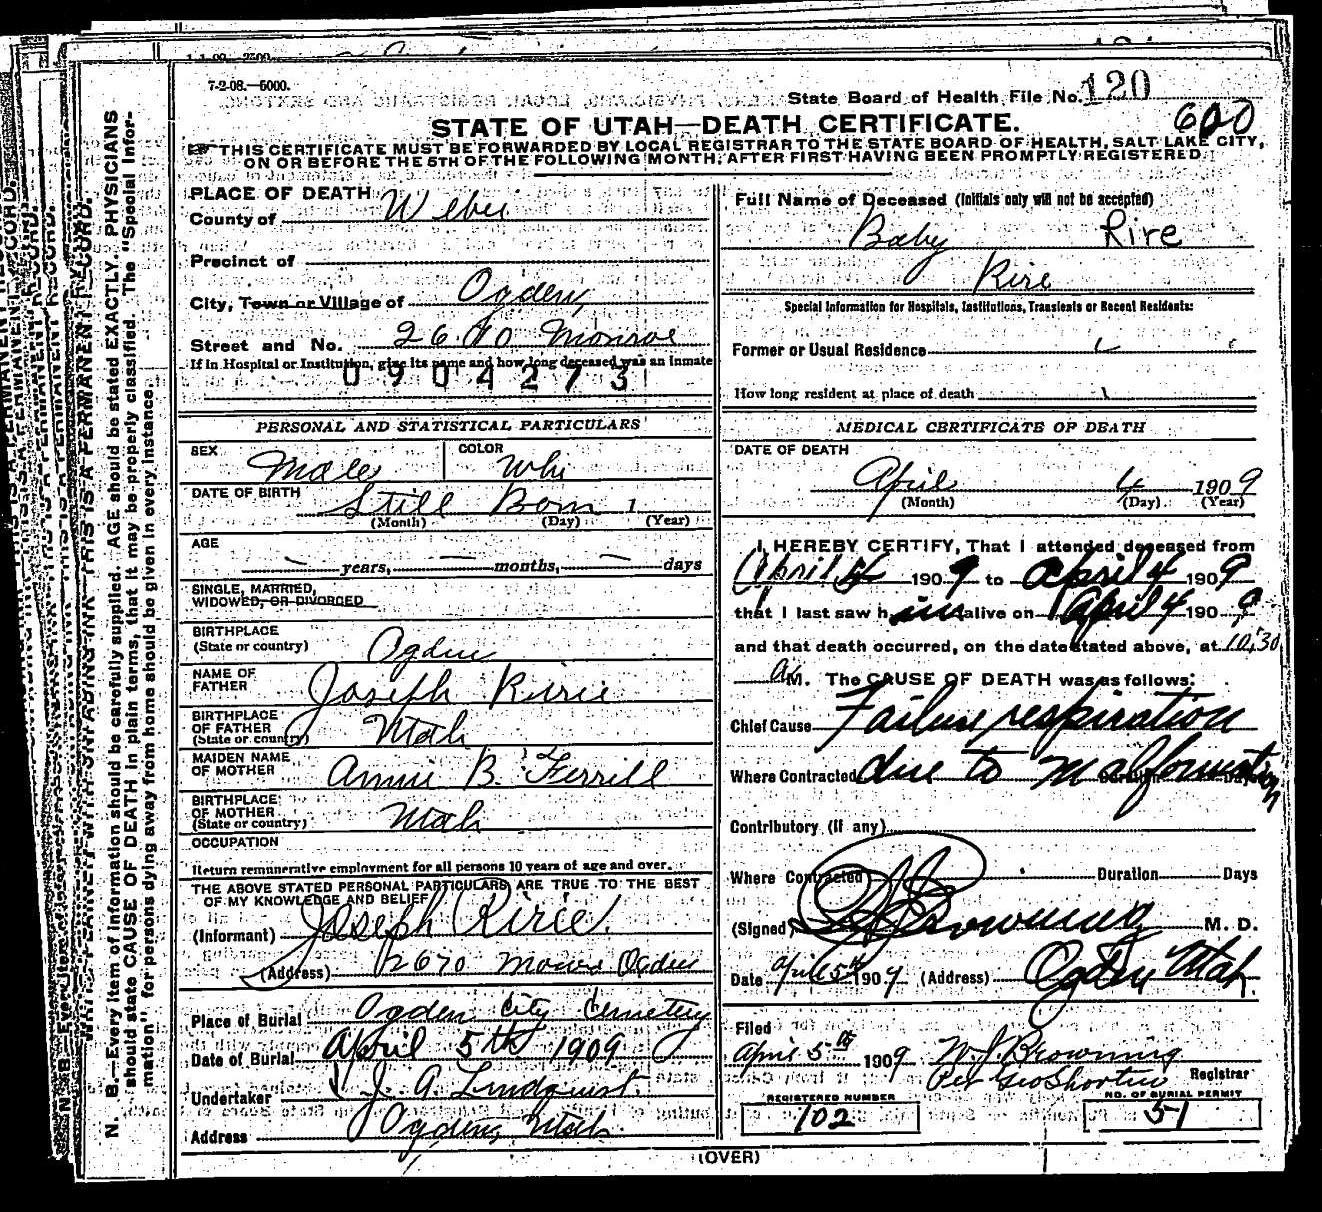 7-2-08.—5000.
State Board of Health File No. 120
600
STATE OF UTAH—DEATH CERTIFICATE.
THIS CERTIFICATE MUST BE FORWARDED BY LOCAL REGISTRAR TO THE STATE BOARD OF HEALTH, SALT LAKE CITY,
ON OR BEFORE THE 5TH OF THE FOLLOWING MONTH, AFTER FIRST HAVING BEEN PROMPTLY REGISTERED.
N. B.—Every item of information should be carefully supplied. AGE should be stated EXACTLY. PHYSICIANS
should state CAUSE OF DEATH in plain terms, that it may be properly classified. The "Special Infor-
mation" for persons dying away from home should be given in every instance.
PLACE OF DEATH
County of Weber
Precinct of
City, Town or Village of Ogden
Street and No. Monroe
If in Hospital or Institution, give its name and how long deceased was an inmate
0904273
PERSONAL AND STATISTICAL PARTICULARS
SEX Male COLOR Whi
DATE OF BIRTH Still Born 1
(Month) (Day) (Year)
AGE
— years, — months, — days
SINGLE, MARRIED,
WIDOWED, OR DIVORCED
BIRTHPLACE
(State or country) Ogden
NAME OF
FATHER Joseph Ririe
BIRTHPLACE
OF FATHER
(State or country) Utah
MAIDEN NAME
OF MOTHER Annie B. Ferrill
BIRTHPLACE
OF MOTHER
(State or country) Utah
OCCUPATION
Return remunerative employment for all persons 10 years of age and over.
THE ABOVE STATED PERSONAL PARTICULARS ARE TRUE TO THE BEST
OF MY KNOWLEDGE AND BELIEF
(Informant) Joseph Ririe.
(Address) 2670 Ogden
Place of Burial Ogden City Cemetery
Date of Burial April 5th 1909
Undertaker J. A. Lindquist.
Address Ogden, Utah.
Full Name of Deceased (Initials only will not be accepted)
Baby Rire
Rire
Special Information for Hospitals, Institutions, Transients or Recent Residents:
Former or Usual Residence
How long resident at place of death
MEDICAL CERTIFICATE OF DEATH
DATE OF DEATH
April 4 1909
(Month) (Day) (Year)
I HEREBY CERTIFY, That I attended deceased from
April 4 1909 to April 4 1909
that I last saw him alive on April 4 1909
and that death occurred, on the date stated above, at 10,30
A M. The CAUSE OF DEATH was as follows:
Chief Cause Failure respiration
Where Contracted due to Malformation Duration Days
Contributory (if any)
Where Contracted Duration Days
(Signed) Browning M. D.
Date Apr 5th 1909 (Address) Ogden Utah.
Filed
April 5th 1909 W. J. Browning
Per Geo Shorten Registrar
REGISTERED NUMBER
102
NO. OF BURIAL PERMIT
51
(OVER)